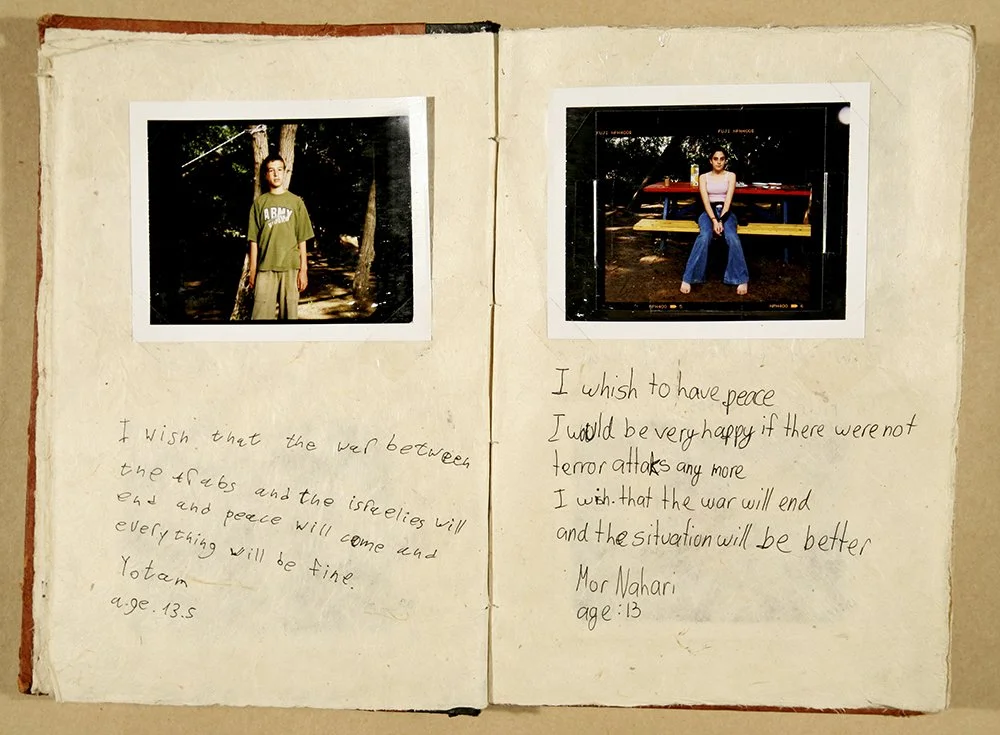 ARMY
I wish that the war between
the Arabs and the israelies will
end and peace will come and
everything will be fine.
Yotam
age.13.5
FUJI NPH400
FUJI NPH400
NPH400
5
NPH400
6
I whish to have peace
I would be very happy if there were not
terror attaks any more
I wish. that the war will end
and the situation will be better
Mor Nahari
age:13